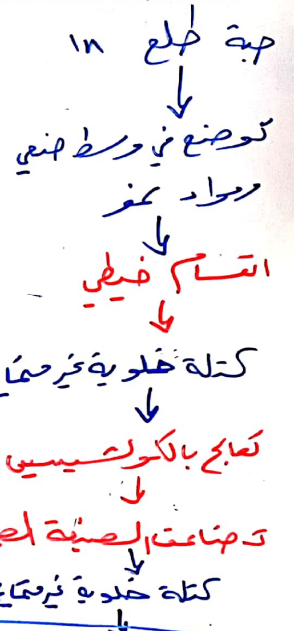 حبة طلع 1n
توضع في وسط صنعي
ومواد نمو
انقسام خيطي
كتلة خلوية غير
تعالج بالكولشيسين
تضاعف الصيغة
كتلة خلوية غير